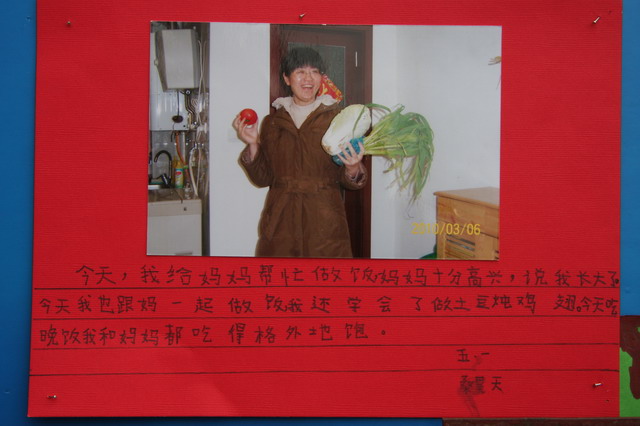 2010/03/06
今天，我给妈妈帮忙做饭妈妈十分高兴，说我长大了
今天我也跟妈一起做饭我还学会了做土豆炖鸡翅。今天吃
晚饭我和妈妈都吃得格外地饱。
五一
天